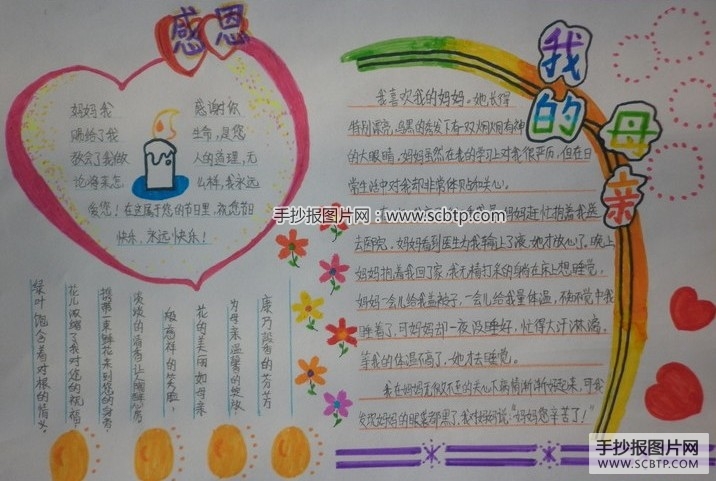 感恩
妈妈我 感谢你
赐给了我 生命,是您
教会了我做 人的道理,无
论将来怎 么样,我永远
爱您!在这属于您的节日里,祝您节日
快乐,永远快乐!
康乃馨香的芬芳
为母亲温馨的笑放
花的美丽如母亲
般慈祥的笑脸,
淡淡的清香让人陶醉
携带一束鲜花来到您的身旁,
花儿浓缩了我对您的祝福,
绿叶饱含着对根的情义。
我的母亲
我喜欢我的妈妈。她长得
特别漂亮,乌黑的秀发下有一双炯炯有神
的大眼睛,妈妈虽然在我的学习上对我很严厉,但在日
常生活中对我却非常体贴和关心。
妈妈赶忙抱着我送
去医院。妈妈看到医生为我输上了液,她才放心了,晚上
妈妈抱着我回了家,我无精打采的躺在床上想睡觉,
妈妈一会儿给我盖被子,一会儿给我量体温,不知不觉中我
睡着了,可妈妈却一夜没睡好,忙得大汗淋漓,
等我的体温隔了,她才去睡觉。
我在妈妈无微不至的关心下病情渐渐好起来,可我
发现妈妈的眼圈都黑了,我对妈妈说:“妈妈您辛苦了!”
手抄报图片网:www.scbtp.com
手抄报图片网
WWW.SCBTP.COM